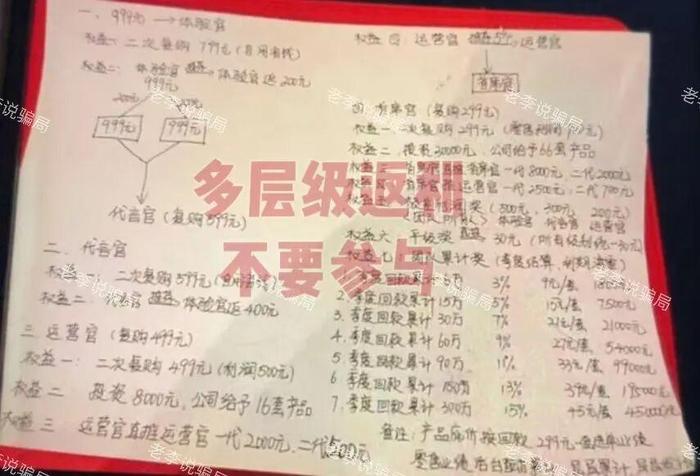 一、999元→体验官
权益一、二次复购 799元(自用省钱)
权益二: 体验官直推体验官返200元
999元
200元 200元
999元 999元
代言官(复购599元)
二、代言官
权益一: 二次复购599元(自用省钱)
权益二: 代言官直推体验官返400元
三、运营官(复购499元)
权益一: 二次复购499元(利润500元)
权益二 投资8000元,公司给予16套产品
权益三 运营官直推运营官一代2000元,二代500元
权益四: 运营官直推5个运营官
首席官
四、首席官(复购299元)
权益一、二次复购299元(零售利润
权益二 投资30000元,公司给予66套产品
权益三 首席官直推首席官一代8000元,二代2000元
权益四 首席官推运营官一代2500元,二代700元
权益五 (500元,300元,200元)
体验官 代言官 运营官
权益六、平级奖 30元(所有级别统一30元)
权益七 团队累计奖(季度结算,
1.季度回款累计5万 3% 9元/套 1800元
2.季度回款累计15万 5% 15元/套 7500元
3.季度回款累计30万 7% 21元/套 21000元
4.季度回款累计60万 9% 27元/套 54000元
5.季度回款累计90万 11% 33元/套 99000元
6.季度回款累计150万 13% 39元/套 195000元
7.季度回款累计300万 15% 45元/套 450000元
备注: 产品底价按回款299元一盒速单业绩
零售业绩后台
多层级返利
不要参与
老李说骗局
老李说骗局
老李说骗局
老李说骗局